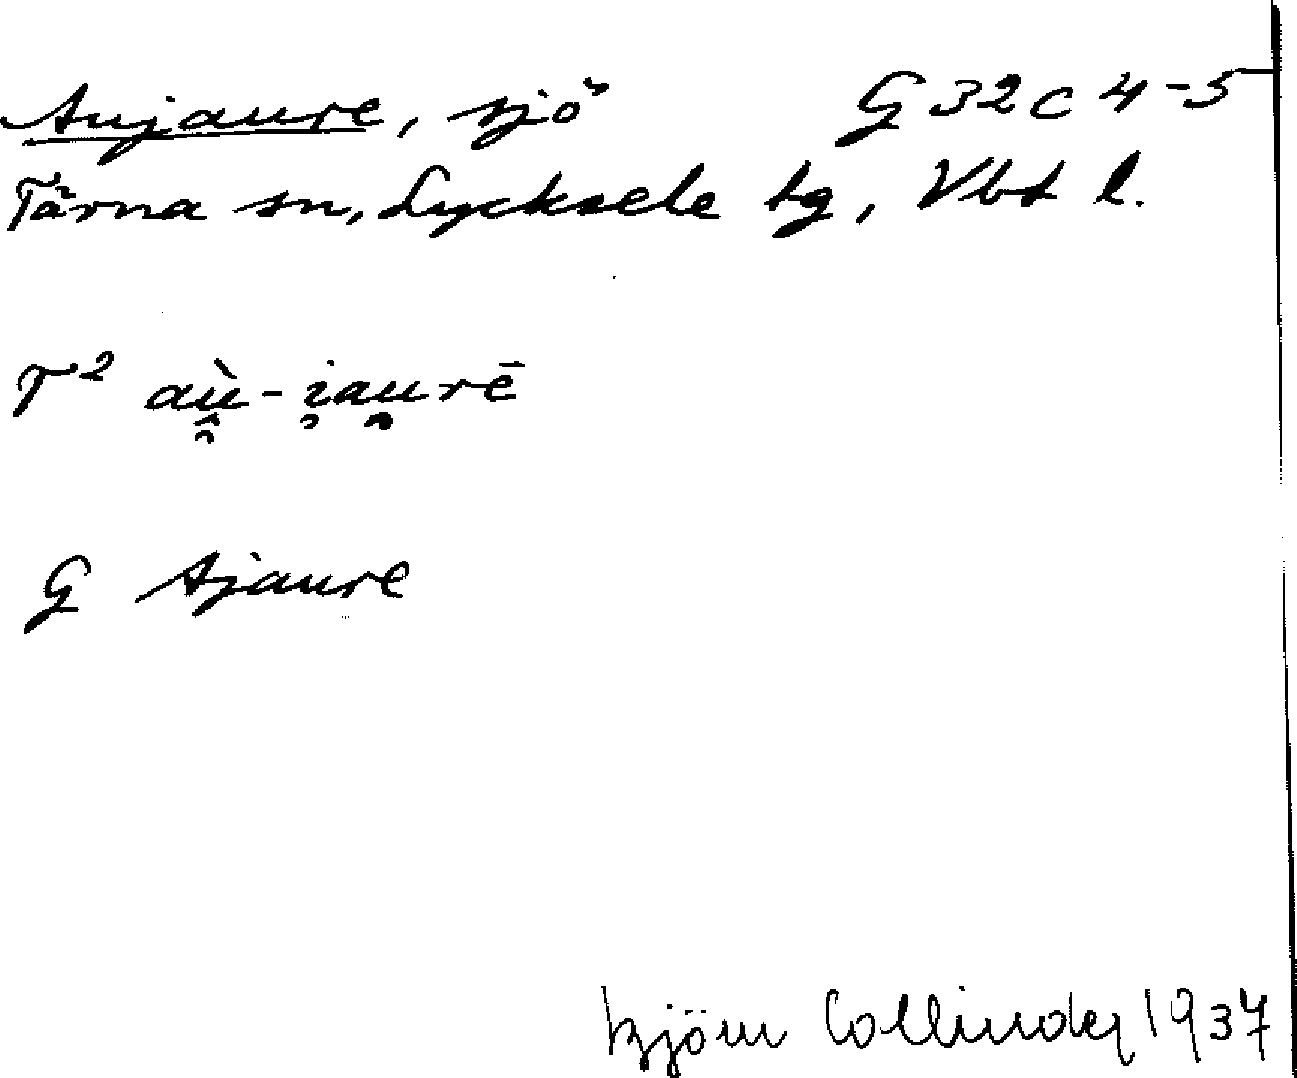 Aujaure, sjö G 32 C 4-5
Tärna sn, Lycksele tg, Vbt l.
T² aù̯-i̯au̯rē
G Ajaure
Björn Collinder 1937